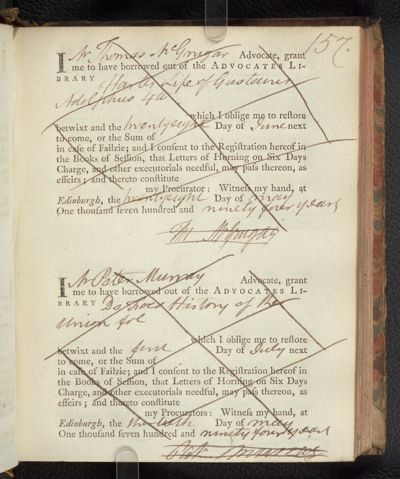 157.
I Mr Thomas McGrugar Advocate, grant
me to have borrowed out of the ADVOCATES LI-
BRARY Hartes Life of Gustavus
Adolphus 4to
which I oblige me to reſtore
betwixt and the twentyeight Day of June next
to come, or the Sum of
in caſe of Failzie; and I conſent to the Regiſtration hereof in
the Books of Seſſion, that Letters of Horning on Six Days
Charge, and other executorials needful, may paſs thereon, as
effeirs; and thereto conſtitute
my Procurator: Witneſs my hand, at
Edinburgh, the twentyeight Day of May
One thouſand ſeven hundred and ninety four years
I Mr Peter Murray Advocate, grant
me to have borrowed out of the ADVOCATES LI-
BRARY History of the
Union fol
which I oblige me to reſtore
betwixt and the first Day of July next
to come, or the Sum of
in caſe of Failzie; and I conſent to the Regiſtration hereof in
the Books of Seſſion, that Letters of Horning on Six Days
Charge, and other executorials needful, may paſs thereon, as
effeirs; and thereto conſtitute
my Procurators: Witneſs my hand, at
Edinburgh, the Day of May
One thouſand ſeven hundred and ninety four years
Murray